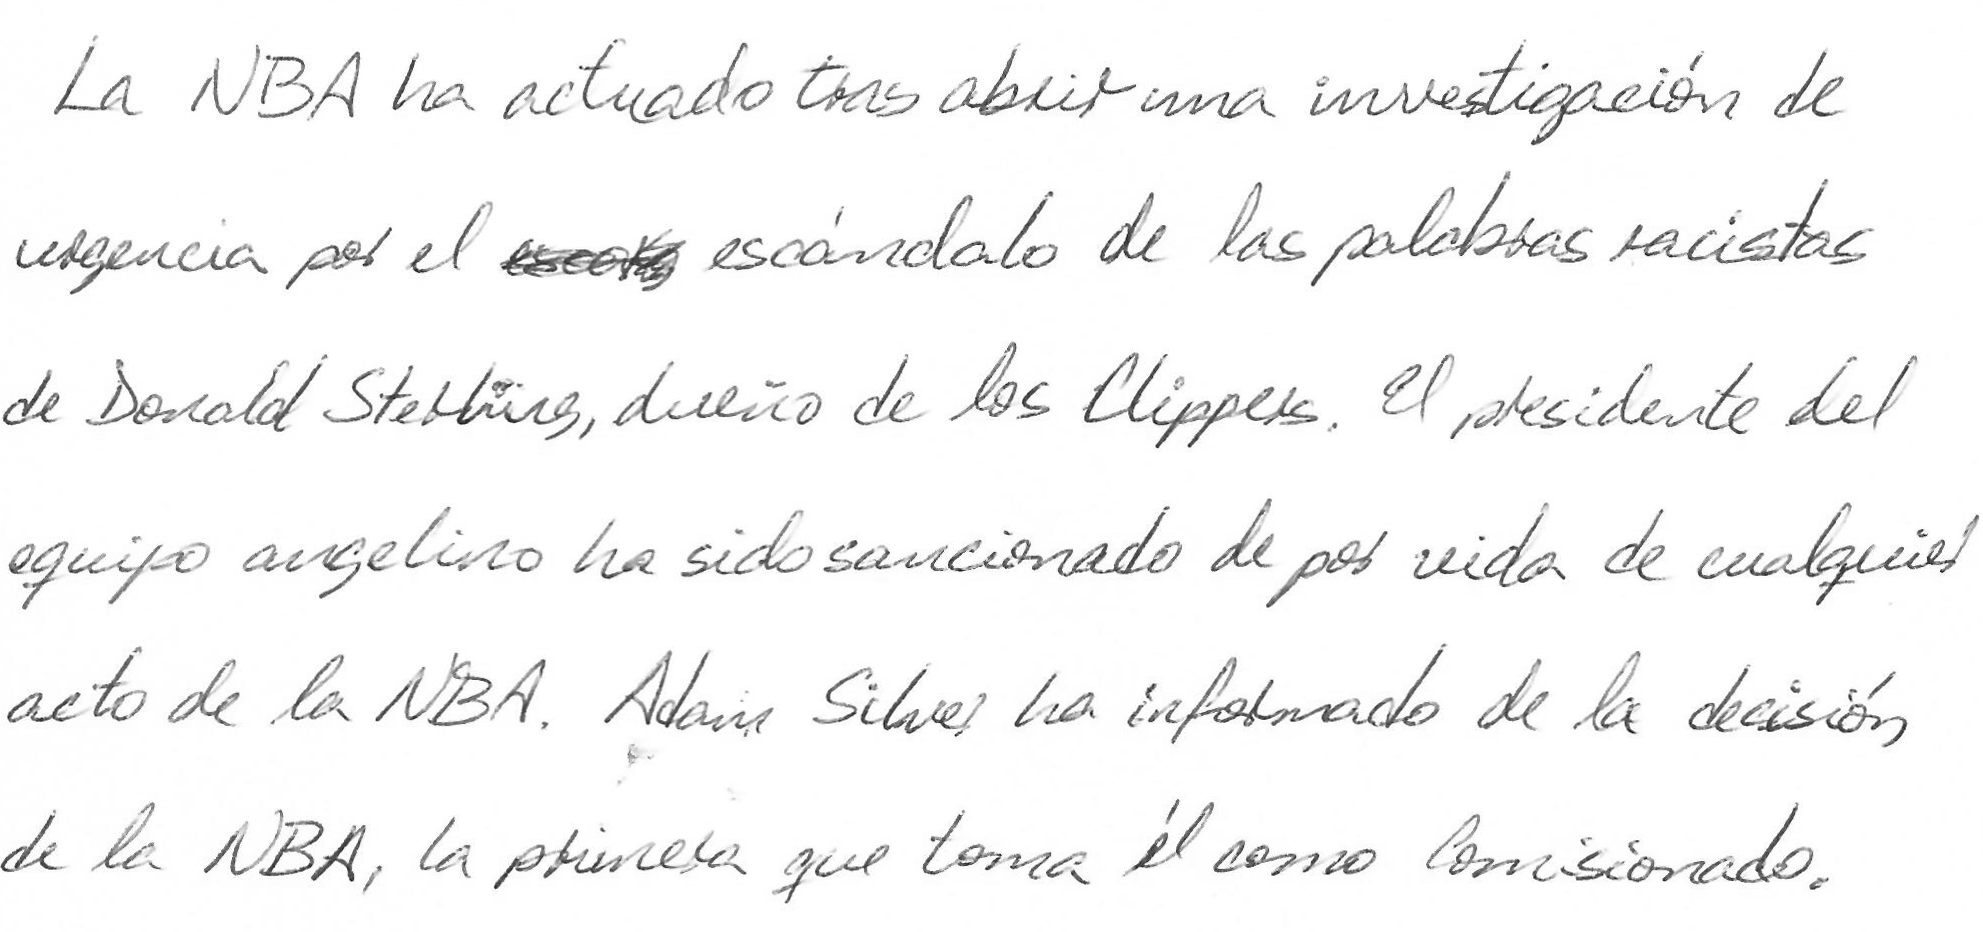 La NBA ha actuado tras abrir una investigación de
urgencia por el escándalo de las palabras racistas
de Donald Sterling, dueño de los Clippers. El presidente del
equipo angelino ha sido sancionado de por vida de cualquier
acto de la NBA. Adam Silver ha informado de la decisión
de la NBA, la primera que toma él como Comisionado.